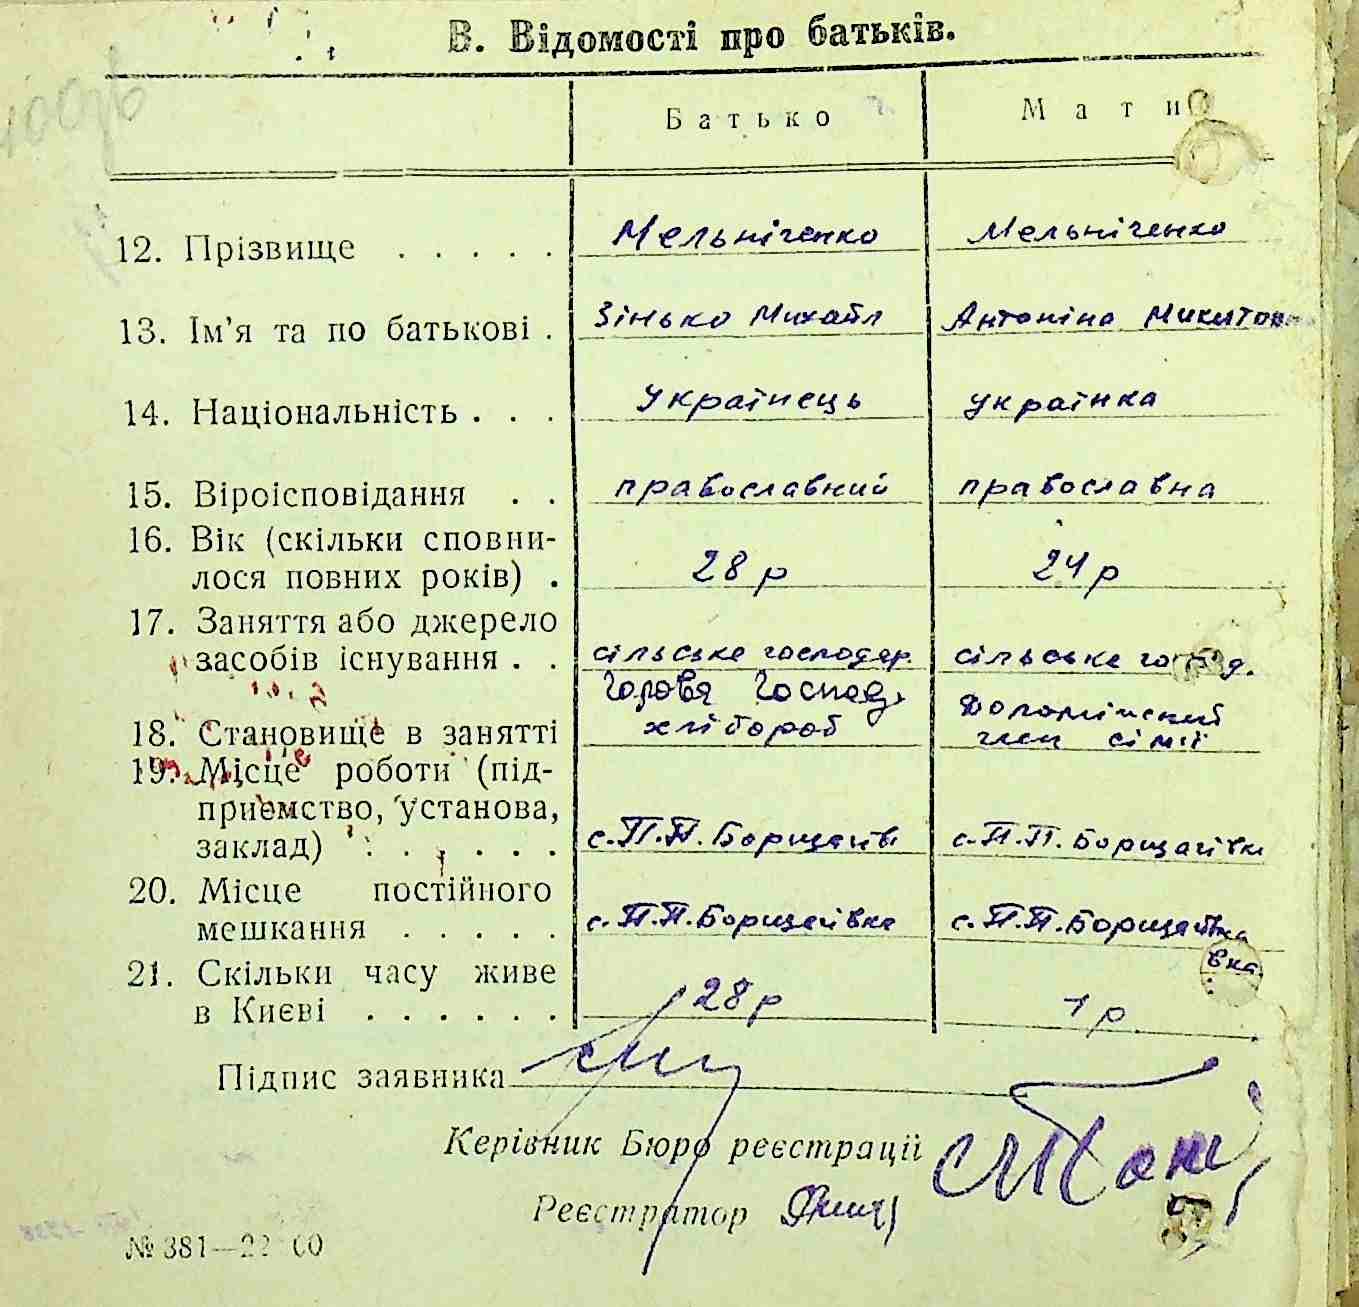 В. Відомості про батьків.
Батько Мати
12. Прізвище . . . . . Мельніченко Мельніченко
13. Ім’я та по батькові . Зінько Михайл Антоніна Микитов
14. Національність . . . Українець українка
15. Віроісповідання . . православний православна
16. Вік (скільки сповни-
лося повних років) . 28 р 24 р
17. Заняття або джерело
засобів існування . . сільське господар. сільське господ.
Голова Господ.
18. Становище в занятті хлібороб член сімії
19. Місце роботи (під-
приємство, установа,
заклад) . . . . . . с. П.П. Борщагів с. П.П. Борщагівк
20. Місце постійного
мешкання . . . . . с. П.П. Борщагівка с. П.П. Борщагівка
вка
21. Скільки часу живе
в Києві . . . . . . 28 р 1 р.
Підпис заявника
Керівник Бюро реєстрації
Реєстратор
№ 381—22 00